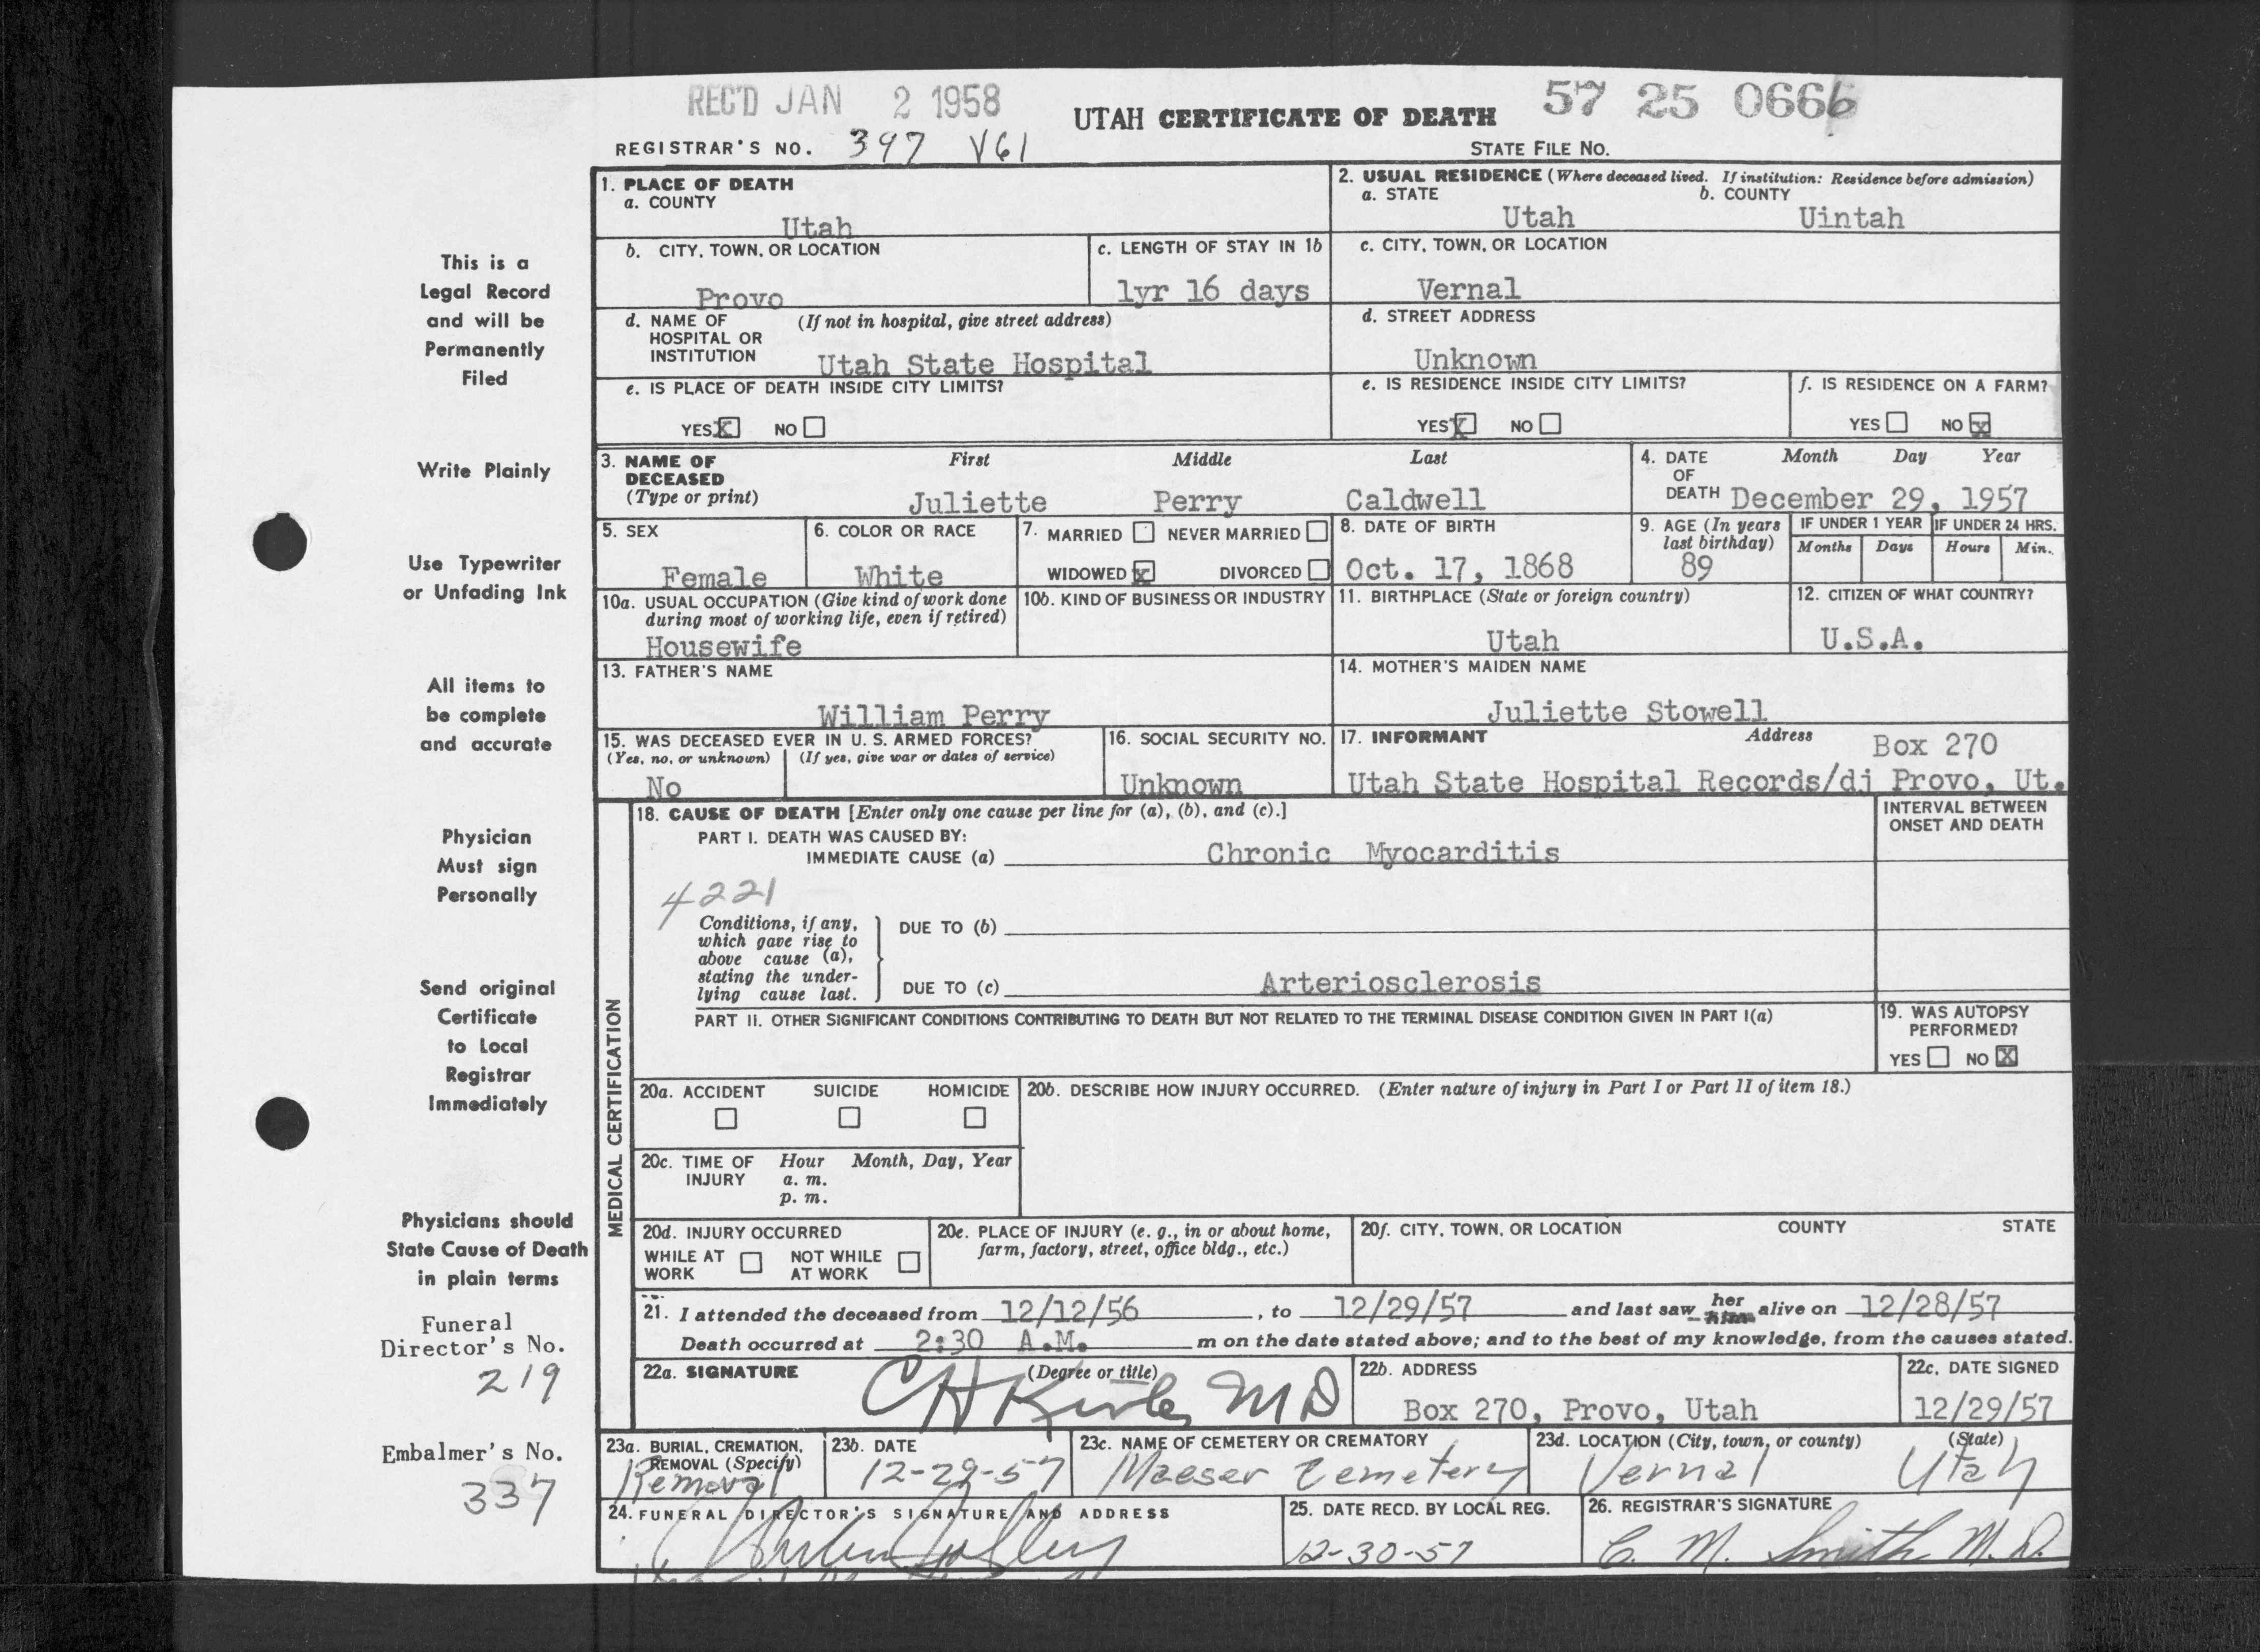 REC'D JAN 2 1958
UTAH CERTIFICATE OF DEATH
57 25 0666
REGISTRAR'S NO. 397 V61
STATE FILE NO.
This is a
Legal Record
and will be
Permanently
Filed
Write Plainly
Use Typewriter
or Unfading Ink
All items to
be complete
and accurate
Physician
Must sign
Personally
Send original
Certificate
to Local
Registrar
Immediately
Physicians should
State Cause of Death
in plain terms
Funeral
Director's No.
219
Embalmer's No.
337
1. PLACE OF DEATH
a. COUNTY
Utah
2. USUAL RESIDENCE (Where deceased lived. If institution: Residence before admission)
a. STATE b. COUNTY
Utah Uintah
b. CITY, TOWN, OR LOCATION
Provo
c. LENGTH OF STAY IN 1b
1yr 16 days
c. CITY, TOWN, OR LOCATION
Vernal
d. NAME OF (If not in hospital, give street address)
HOSPITAL OR
INSTITUTION Utah State Hospital
d. STREET ADDRESS
Unknown
e. IS PLACE OF DEATH INSIDE CITY LIMITS?
YES X NO
e. IS RESIDENCE INSIDE CITY LIMITS?
YES X NO
f. IS RESIDENCE ON A FARM?
YES NO X
3. NAME OF First Middle Last
DECEASED
(Type or print) Juliette Perry Caldwell
4. DATE Month Day Year
OF
DEATH December 29, 1957
5. SEX
Female
6. COLOR OR RACE
White
7. MARRIED NEVER MARRIED
WIDOWED X DIVORCED
8. DATE OF BIRTH
Oct. 17, 1868
9. AGE (In years
last birthday)
89
IF UNDER 1 YEAR IF UNDER 24 HRS.
Months Days Hours Min.
10a. USUAL OCCUPATION (Give kind of work done
during most of working life, even if retired)
Housewife
10b. KIND OF BUSINESS OR INDUSTRY
11. BIRTHPLACE (State or foreign country)
Utah
12. CITIZEN OF WHAT COUNTRY?
U.S.A.
13. FATHER'S NAME
William Perry
14. MOTHER'S MAIDEN NAME
Juliette Stowell
15. WAS DECEASED EVER IN U. S. ARMED FORCES?
(Yes, no, or unknown) (If yes, give war or dates of service)
No
16. SOCIAL SECURITY NO.
Unknown
17. INFORMANT Address Box 270
Utah State Hospital Records/dj Provo, Ut.
MEDICAL CERTIFICATION
18. CAUSE OF DEATH [Enter only one cause per line for (a), (b), and (c).]
INTERVAL BETWEEN
ONSET AND DEATH
PART I. DEATH WAS CAUSED BY:
IMMEDIATE CAUSE (a) Chronic Myocarditis
4221
Conditions, if any,
which gave rise to
above cause (a),
stating the under-
lying cause last.
DUE TO (b)
DUE TO (c) Arteriosclerosis
PART II. OTHER SIGNIFICANT CONDITIONS CONTRIBUTING TO DEATH BUT NOT RELATED TO THE TERMINAL DISEASE CONDITION GIVEN IN PART I(a)
19. WAS AUTOPSY
PERFORMED?
YES NO X
20a. ACCIDENT SUICIDE HOMICIDE
20b. DESCRIBE HOW INJURY OCCURRED. (Enter nature of injury in Part I or Part II of item 18.)
20c. TIME OF Hour Month, Day, Year
INJURY a. m.
p. m.
20d. INJURY OCCURRED
WHILE AT NOT WHILE
WORK AT WORK
20e. PLACE OF INJURY (e. g., in or about home,
farm, factory, street, office bldg., etc.)
20f. CITY, TOWN, OR LOCATION COUNTY STATE
21. I attended the deceased from 12/12/56, to 12/29/57 and last saw her him alive on 12/28/57
Death occurred at 2:30 A.M. m on the date stated above; and to the best of my knowledge, from the causes stated.
22a. SIGNATURE (Degree or title)
C H M D
22b. ADDRESS
Box 270, Provo, Utah
22c. DATE SIGNED
12/29/57
23a. BURIAL, CREMATION,
REMOVAL (Specify)
Removal
23b. DATE
12-29-57
23c. NAME OF CEMETERY OR CREMATORY
Maeser Cemetery
23d. LOCATION (City, town, or county) (State)
Vernal Utah
24. FUNERAL DIRECTOR'S SIGNATURE AND ADDRESS
25. DATE RECD. BY LOCAL REG.
12-30-57
26. REGISTRAR'S SIGNATURE
C. M. Smith M.D.